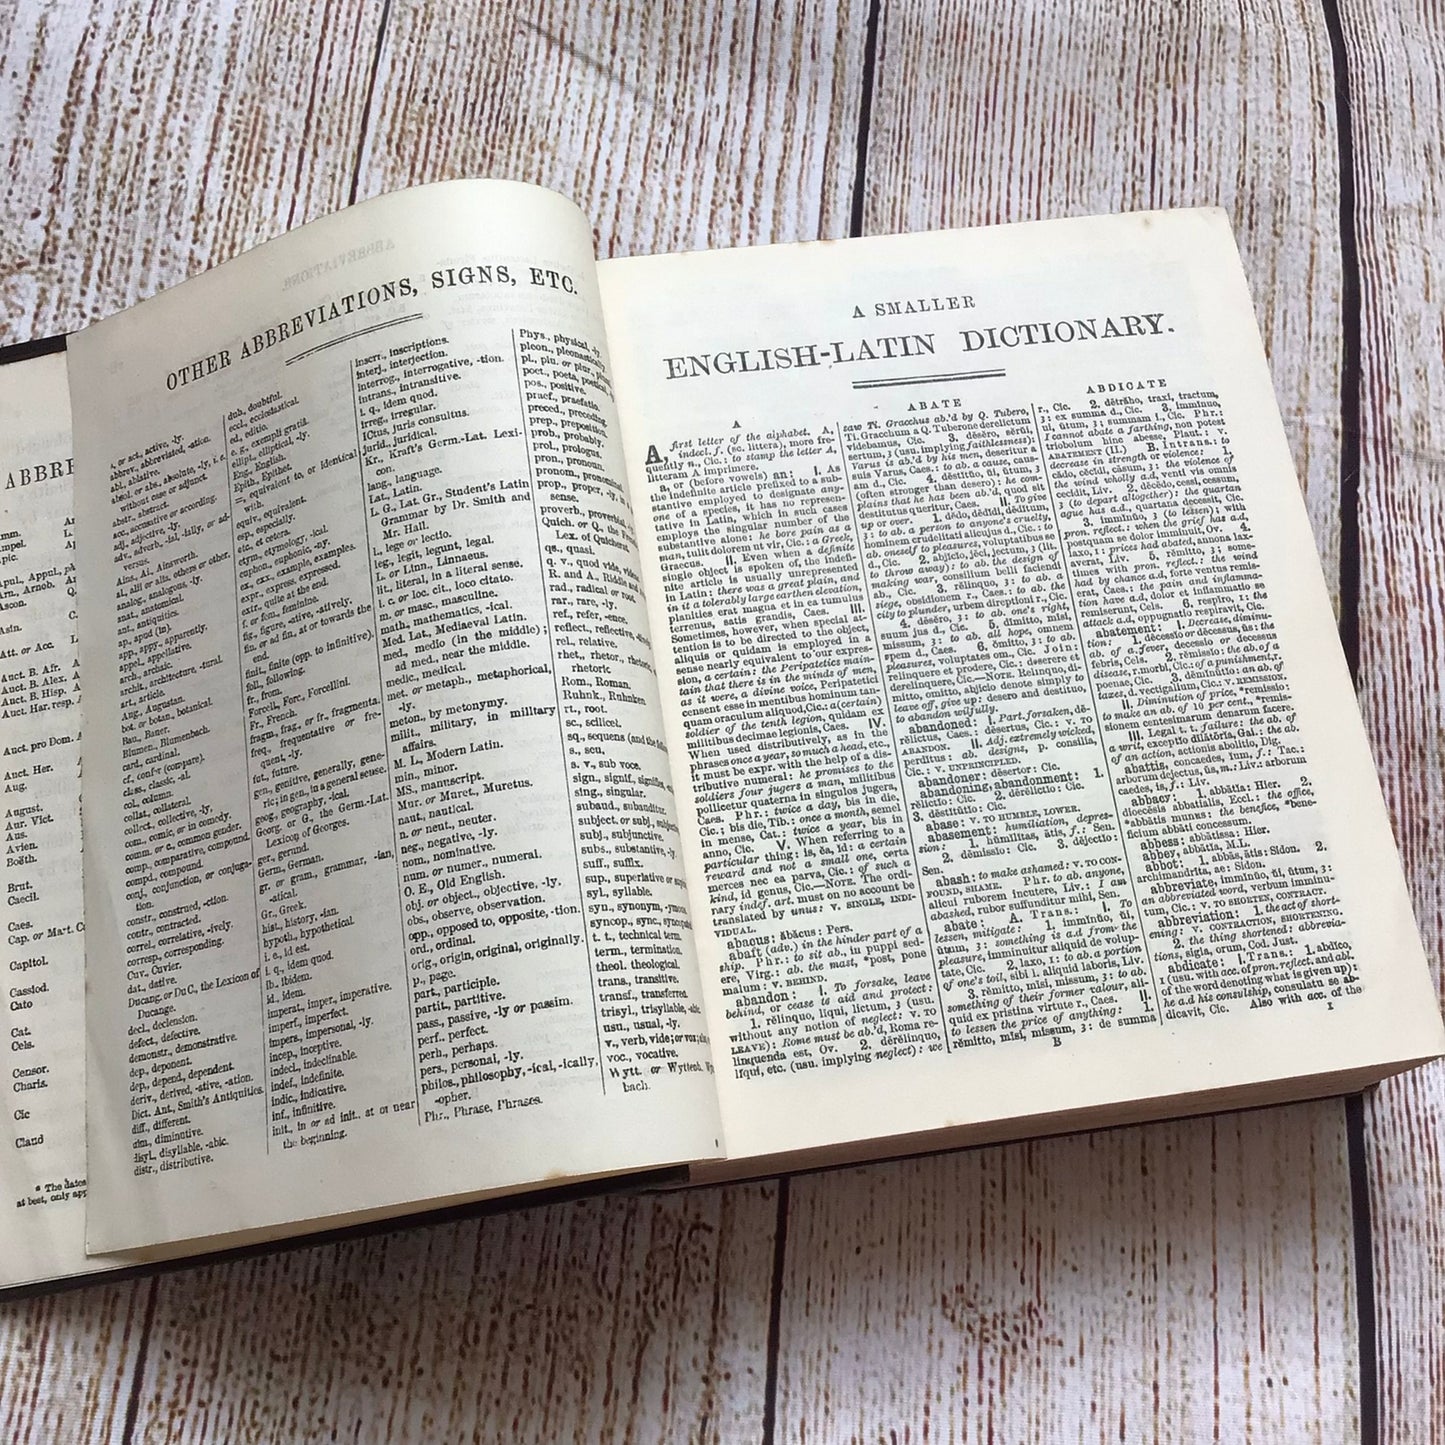 ABBRE
Apul., Appul.
Arn., Arnob.
Ascon.
Asin.
Att. or Acc.
Auct. B. Afr.
Auct. B. Alex.
Auct. B. Hisp.
Auct. Har. resp.
Auct. pro Dom.
Auct. Her.
Aug.
August.
Aur. Vict.
Aus.
Avien.
Boëth
Brut.
Caecil.
Caes.
Cap. or Mart. C
Capitol.
Cassiod.
Cato
Cat.
Cels.
Censor.
Charis.
Cic
Claud
* The dates
at best, only app
OTHER ABBREVIATIONS, SIGNS, ETC.
a, or act., active, -ly.
abbrev., abbreviated, -ation.
abl., ablative.
absol. or abs., absolute, -ly, i. e.
without case or adjunct.
abstr., abstract.
acc., accusative or according.
adj., adjective, -ly.
adv., adverb, -ial, -ially, or ad-
versus.
Ains., Ai., Ainsworth.
al., alii or alia, others or other.
analog., analogous, -ly.
anat., anatomical.
ant., antiquities.
ap., apud (in).
app., appy., apparently.
appel., appellative.
arch., archaic.
archit., architecture, -tural.
art., article.
Aug., Augustan.
bot. or botan., botanical.
Bau., Bauer.
Blumen., Blumenbach.
card., cardinal.
cf., confer (compare).
class., classic, -al.
col., column.
collat., collateral.
collect., collective, -ly.
com., comic, or in comedy.
comm. or c., common gender.
comp., comparative, compound.
compd., compound.
conj., conjunction, or conjuga-
tion.
contr., construed, -ction.
contr., contracted.
correl., correlative, -ively.
corresp., corresponding.
Cuv., Cuvier.
dat., dative.
Ducang. or Du C., the Lexicon of
Ducange.
decl., declension.
defect., defective.
demonstr., demonstrative.
dep., deponent.
dep., depend, dependent.
deriv., derived, -ative, -ation.
Dict. Ant., Smith's Antiquities.
diff., different.
dim., diminutive.
disyl., disyllable, -abic.
distr., distributive.
dub., doubtful.
eccl., ecclesiastical.
ed., editio.
e. g., exempli gratiâ.
ellipt., elliptical, -ly.
Eng., English.
Epith., Epithet.
=, equivalent to, or identical
with.
equiv., equivalent.
esp., especially.
etc., et cetera.
etym., etymology, -ical.
euphon., euphonic, -ny.
ex., exx., example, examples.
expr., express, expressed.
extr., quite at the end.
f. or fem., feminine.
fig., figure, -ative, -atively.
fin. or ad fin., at or towards the
end.
finit., finite (opp. to infinitive).
foll., following.
fr., from.
Forcell., Forc., Forcellini.
Fr., French.
fragm., frag., or fr., fragmenta.
freq., frequentative or fre-
quent, -ly.
fut., future.
gen., genitive, generally, gene-
ric; in gen., in a general sense.
geog., geography, -ical.
Georg. or G., the Germ.-Lat.
Lexicon of Georges.
ger., gerund.
Germ., German.
gr. or gram., grammar, -ian,
-atical.
Gr., Greek.
hist., history, -ian.
hypoth., hypothetical.
i. e., id est.
i. q., idem quod.
Ib., ibidem.
id., idem.
imperat., imper., imperative.
imperf., imperfect.
impers., impersonal, -ly.
incep., inceptive.
indecl., indeclinable.
indef., indefinite.
indic., indicative.
inf., infinitive.
init., in or ad init., at or near
the beginning.
inscrr., inscriptions.
interj., interjection.
interrog., interrogative, -tion.
intrans., intransitive.
i. q., idem quod.
irreg., irregular.
ICtus, juris consultus.
jurid., juridical.
Kr., Kraft's Germ.-Lat. Lexi-
con.
lang., language.
Lat., Latin.
L. G., Lat. Gr., Student's Latin
Grammar by Dr. Smith and
Mr. Hall.
l., lege or lectio.
leg., legit, legunt, legal.
L. or Linn., Linnaeus.
lit., literal, in a literal sense.
l. c. or loc. cit., loco citato.
m. or masc., masculine.
math., mathematics, -ical.
Med. Lat., Mediaeval Latin.
med., medio (in the middle);
ad med., near the middle.
medic., medical.
met. or metaph., metaphorical,
-ly.
meton., by metonymy.
milit., military, in military
affairs.
M. L., Modern Latin.
min., minor.
MS., manuscript.
Mur. or Muret., Muretus.
naut., nautical.
n. or neut., neuter.
neg., negative, -ly.
nom., nominative.
num. or numer., numeral.
O. E., Old English.
obj. or object., objective, -ly.
obs., observe, observation.
opp., opposed to, opposite, -tion.
ord., ordinal.
orig., origin, original, originally.
p., page.
part., participle.
partit., partitive.
pass., passive, -ly or passim.
perf., perfect.
perh., perhaps.
pers., personal, -ly.
philos., philosophy, -ical, -ically,
-opher.
Phr., Phrase, Phrases.
Phys., physical, -ly.
pleon., pleonastically.
pl., plu. or plur.,
poct., poeta, poetical,
pos., positive.
praef., praefatio.
preced., preceding.
prep., preposition.
prob., probably.
prol., prologus.
pron., pronoun.
pron., pronomin
prop., proper, -ly,
sense.
proverb., proverbial,
Quich. or Q., the
Lex. of Quicherat.
qs., quasi.
q. v., quod vide,
R. and A., Riddle and
rad., radical or root.
rar., rare, -ly.
ref., refer, -ence.
reflect., reflective,
rel., relative.
rhet., rhetor., rhetoric,
rhetoric
Rom., Roman.
Ruhnk., Ruhnken
rt., root.
sc., scilicet.
sq., sequens (and the
s., seu.
s. v., sub voce.
sign., signif., signifies,
sing., singular.
subaud., subauditur.
subject. or subj.,
subj., subjunctive.
subs., substantive, -ly
suff., suffix.
sup., superlative or
syl., syllable.
syn., synonym, -ymous
syncop., sync., syncopated
t. t., technical term.
term., termination.
theol. theological.
trans., transitive.
transf., transferred.
trisyl., trisyllable, -abic.
usu., usual, -ly.
v., verb, vide; or vox;
voc., vocative.
Wytt. or Wyttenb.
bach.
A SMALLER
ENGLISH-LATIN DICTIONARY.
A
A, first letter of the alphabet. A,
indecl. f. (sc. littera), more fre-
quently n., Cic.: to stamp the letter A,
litteram A imprimere.
a, or (before vowels) an: I. As
the indefinite article prefixed to a sub-
stantive employed to designate any-
one of a species, it has no represen-
tative in Latin, which in such cases
employs the singular number of the
substantive alone: he bore pain as a
man, tulit dolorem ut vir, Cic.: a Greek,
Graecus. II. Even when a definite
single object is spoken of, the indefi-
nite article is usually unrepresented
in Latin: there was a great plain, and
in it a tolerably large earthen elevation,
planities erat magna et in ea tumulus
terrenus, satis grandis, Caes. III.
Sometimes, however, when special at-
tention is to be directed to the object,
aliquis or quidam is employed in a
sense nearly equivalent to our expres-
sion, a certain: the Peripatetics main-
tain that there is in the minds of men,
as it were, a divine voice, Peripatetici
censent esse in mentibus hominum tan-
quam oraculum aliquod, Cic.: a (certain)
soldier of the tenth legion, quidam ex
militibus decimae legionis, Caes. IV.
When used distributively, as in the
phrases once a year, so much a head, etc.,
it must be expr. with the help of a dis-
tributive numeral: he promises to the
soldiers four jugers a man, militibus
pollicetur quaterna in singulos jugera,
Caes. Phr.: twice a day, bis in die,
Cic.; bis die, Tib.: once a month, semel
in mense, Cat.: twice a year, bis in
anno, Cic. V. When referring to a
particular thing: is, ĕa, id: a certain
reward and not a small one, certa
merces nec ea parva, Cic.: of such a
kind, id genus, Cic.—NOTE. The ordi-
nary indef. art. must on no account be
translated by unus: v. SINGLE, INDI-
VIDUAL.
abacus: ăbăcus: Pers.
abaft (adv.) in the hinder part of a
ship. Phr.: to sit ab., in puppi sed-
ere, Virg.: ab. the mast, *post, pone
malum: v. BEHIND.
abandon: I. To forsake, leave
behind, or cease to aid and protect:
1. rĕlinquo, līqui, lictum, 3 (usu.
without any notion of neglect: v. TO
LEAVE): Rome must be ab'd, Roma re-
linquenda est, Ov. 2. dērĕlinquo,
līqui, etc. (usu. implying neglect): we
ABATE
saw Ti. Gracchus ab'd by Q. Tubero,
Ti. Gracchum a Q. Tuberone derelictum
videbamus, Cic. 3. dēsĕro, sĕrŭi,
sertum, 3 (usu. implying faithlessness):
Varus is ab'd by his men, deseritur a
suis Varus, Caes.: to ab. a cause, caus-
am d., Cic. 4. dēstĭtŭo, ŭi, ūtum, 3
(often stronger than desero): he com-
plains that he has been ab'd, quod sit
destitutus queritur, Caes. II. To give
up or over. 1. dēdo, dēdĭdi, dēdĭtum,
3: to ab. a person to anyone's cruelty,
hominem crudelitati alicujus d., Cic.: to
ab. oneself to pleasures, voluptatibus se
d., Cic. 2. abjĭcio, jēci, jectum, 3 (lit.
to throw away): to ab. the design of
making war, consilium belli faciendi
ab., Cic. 3. rĕlinquo, 3: to ab. a
siege, obsidionem r., Caes.: to ab. the
city to plunder, urbem direptioni r., Cic.
4. dēsĕro, 3: to ab. one's right,
suum jus d., Cic. 5. dīmitto, mīsi,
missum, 3: to ab. all hope, omnem
spem d., Caes. 6. ŏmitto, 3: to ab.
pleasures, voluptates om., Cic. Join:
relinquere et prodere, Cic.: deserere et
derelinquere, Cic.—NOTE. Relinquo, di-
mitto, omitto, abjicio denote simply to
leave off, give up: desero and destituo,
to abandon wilfully.
abandoned: I. Part. forsaken, dē-
rĕlictus, Caes.: dēsertus, Cic.: v. TO
ABANDON. II. Adj. extremely wicked,
perditus: ab. designs, p. consilia,
Cic.: v. UNPRINCIPLED.
abandoner: dēsertor: Cic.
abandoning, abandonment: 1.
rĕlictio: Cic. 2. dērĕlictio: Cic.
3. dēstĭtūtio: Cic.
abase: v. TO HUMBLE, LOWER.
abasement: humiliation, depres-
sion: 1. hŭmĭlĭtas, ātis, f.: Sen.
2. dēmissio: Cic. 3. dējectio:
Sen.
abash: to make ashamed: v. TO CON-
FOUND, SHAME. Phr. to ab. anyone,
alicui ruborem incutere, Liv.: I am
abashed, rubor suffunditur mihi, Sen.
abate: A. Trans.: I. To
lessen, mitigate: 1. immĭnŭo, ŭi,
ūtum, 3: something is a.d from the
pleasure, imminuitur aliquid de volup-
tate, Cic. 2. laxo, 1: to ab. a portion
of one's toil, sibi l. aliquid laboris, Liv.
3. rĕmitto, mīsi, missum, 3: to ab.
something of their former valour, ali-
quid ex pristina virtute r., Caes. II.
to lessen the price of anything: 1.
rĕmitto, mīsi, missum, 3: de summa
B
ABDICATE
r., Cic. 2. dētrăho, traxi, tractum,
3: ex summa d., Cic. 3. immĭnŭo,
ŭi, ūtum, 3: summam i., Cic. Phr.:
I cannot abate a farthing, non potest
triobolum hinc abesse, Plaut.: v.
ABATEMENT (II.) B. Intrans.: to
decrease in strength or violence: 1.
cădo, cĕcĭdi, cāsum, 3: the violence of
the wind wholly a.d, venti vis omnis
cecidit, Liv. 2. dēcēdo, cessi, cessum,
3 (to depart altogether): the quartan
ague has a.d., quartana decessit, Cic.
3. immĭnŭo, 3 (to lessen); with
pron. reflect.: when the grief has a.d,
postquam se dolor imminuit, Ov. 4.
laxo, 1: prices had abated, annona lax-
averat, Liv. 5. rĕmitto, 3: some-
times with pron. reflect.: the wind
had by chance a.d, forte ventus remis-
erat, Caes.: the pain and inflamma-
tion have a.d, dolor et inflammatio se
remiserunt, Cels. 6. respīro, 1: the
attack a.d, oppugnatio respiravit, Cic.
abatement: I. Decrease, diminu-
tion: 1. dēcessio or dēcessus, ūs: the
ab. of a fever, decessio or decessus
febris, Cels. 2. rĕmissio: the ab. of a
disease, morbi, Cic.: of a punishment,
poenae, Cic. 3. dēmĭnūtio: an ab. of
taxes, d. vectigalium, Cic.: v. REMISSION.
II. Diminution of price, *remissio:
to make an ab. of 10 per cent., *remis-
sionem centesimarum denarum facere.
III. Legal t. t. failure: the ab. of
a writ, exceptio dīlātōria, Gai.: the ab.
of an action, actionis abolitio, Dig.
abattis, concaedes, ium, f.: Tac.:
arborum dejectus, ūs, m.: Liv.: arborum
caedes, is, f.: Liv.
abbacy: 1. abbātia: Hier. 2.
dioecēsis abbatialis, Eccl.: the office,
*abbātis munus: the benefice, *bene-
ficium abbati concessum.
abbess: abbātissa: Hier.
abbey, abbātia, M. L.
abbot: 1. abbas, ātis: Sidon. 2.
archimandrita, ae: Sidon.
abbreviate, immĭnŭo, ŭi, ūtum, 3:
an abbreviated word, verbum imminu-
tum, Cic.: v. TO SHORTEN, CONTRACT.
abbreviation: 1. the act of short-
ening: v. CONTRACTION, SHORTENING.
2. the thing shortened: abbrevia-
tions, sigla, orum, Cod. Just.
abdicate: I. Trans.: 1. abdĭco,
1 (usu. with acc. of pron. reflect. and abl.
of the word denoting what is given up):
he a.d his consulship, consulatu se ab-
dicavit, Cic. Also with acc. of the
1